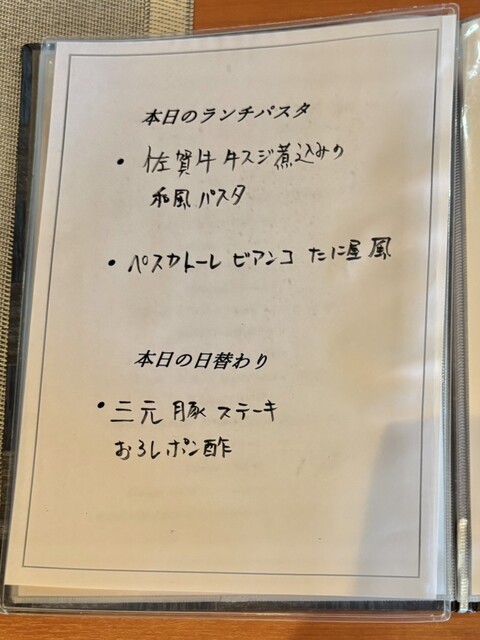 本日のランチパスタ
• 佐賀牛 牛スジ煮込みの
和風パスタ
• ペスカトーレ ビアンコ たに屋風
本日の日替わり
• 三元豚 ステーキ
おろしポン酢